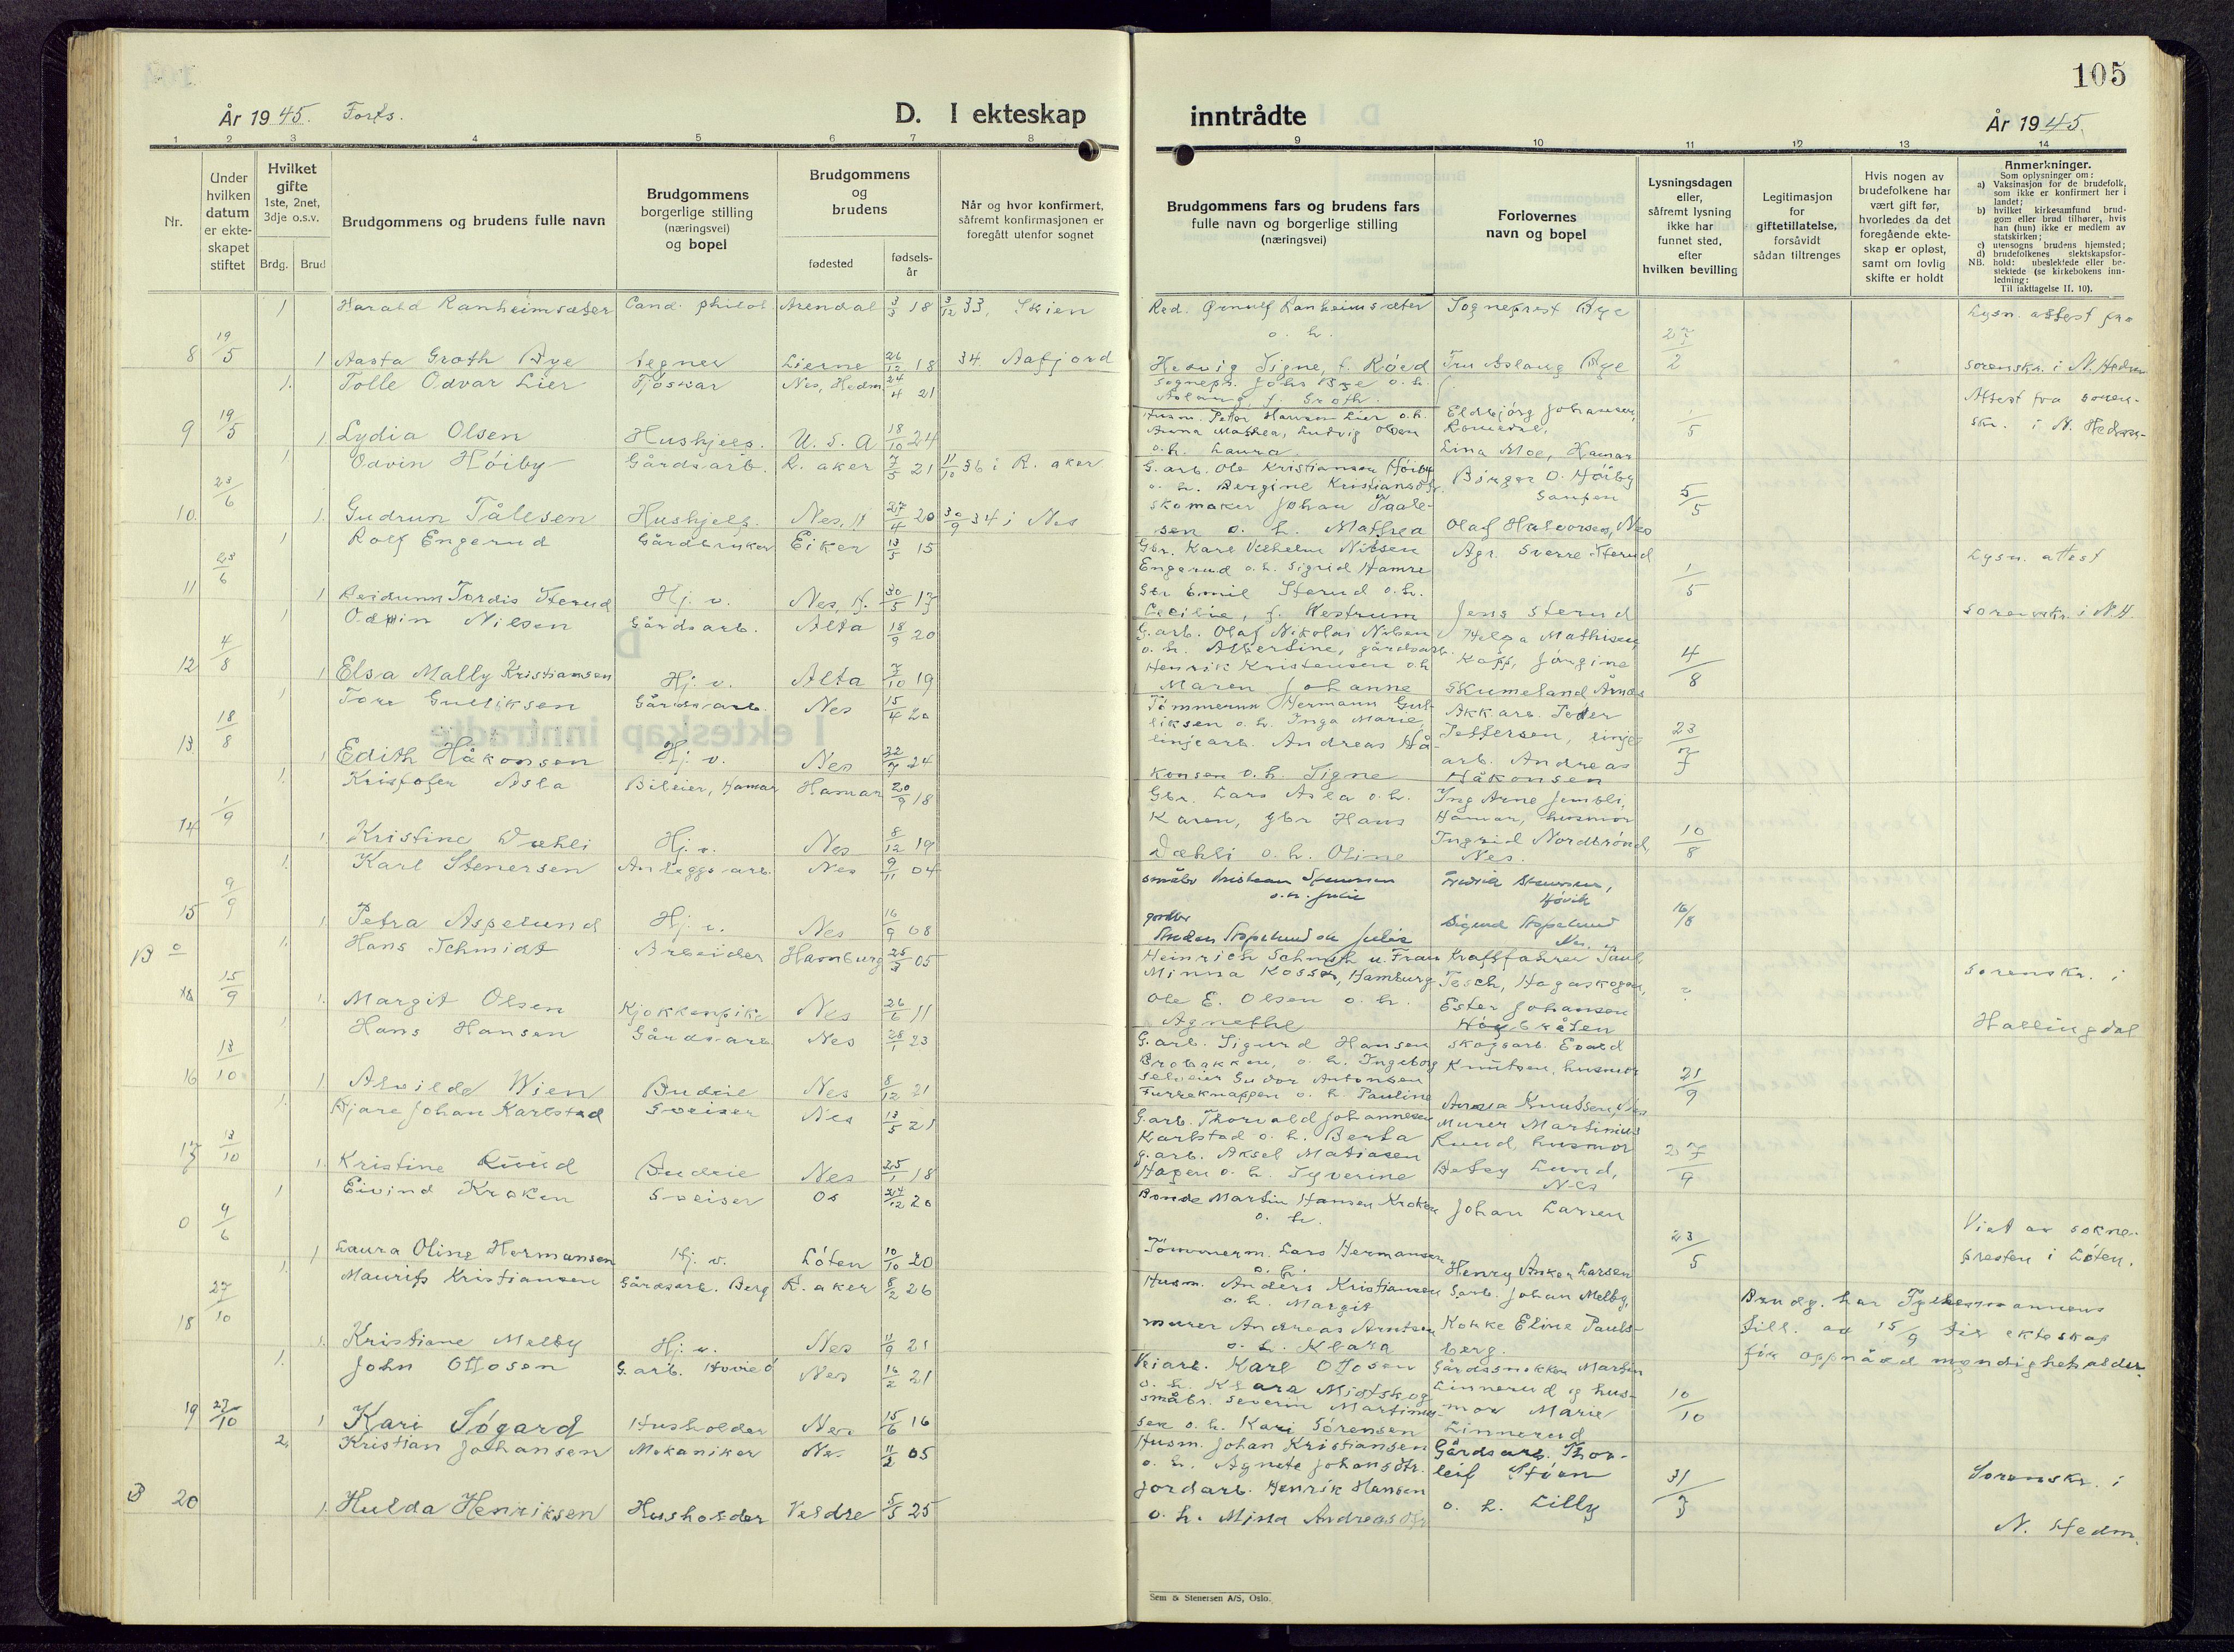 105
År 1945. Forts.
D. I ekteskap
inntrådte
År 1945.
1 2 3 4 5 6 7 8 9 10 11 12 13 14
Nr.
Under hvilken datum er ekteskapet stiftet
Hvilket gifte 1ste, 2net, 3dje o.s.v.
Brdg. Brud
Brudgommens og brudens fulle navn
Brudgommens borgerlige stilling (næringsvei) og bopel
Brudgommens og brudens
fødested
fødsels-år
Når og hvor konfirmert, såfremt konfirmasjonen er foregått utenfor sognet
Brudgommens fars og brudens fars fulle navn og borgerlige stilling (næringsvei)
Forlovernes navn og bopel
Lysningsdagen eller, såfremt lysning ikke har funnet sted, efter hvilken bevilling
Legitimasjon for giftetillatelse, forsåvidt sådan tiltrenges
Hvis nogen av brudefolkene har vært gift før, hvorledes da det foregående ekteskap er opløst, samt om lovlig skifte er holdt
Anmerkninger.
Som oplysninger om:
a) Vaksinasjon for de brudefolk, som ikke er konfirmert her i landet;
b) hvilket kirkesamfund brudgom eller brud tilhører, hvis han (hun) ikke er medlem av statskirken;
c) utensogns brudens hjemsted;
d) brudefolkenes slektskapsforhold: ubeslektede eller beslektede (se kirkebokens innledning:
NB.
Til iakttagelse II, 10).
1 Harald Ranheimsæter Cand. philol. Arendal 3/3 18 3/12 33, Skien
8 19/5 1 Aasta Groth Bye tegner Lierne 26/12 18 34 Aafjord
1. Tolle Odvar Lier Fjøskar Nes, Hedm 24/4 21
9 19/5 1 Lydia Olsen Hushjelp. U.S.A 18/10 24
1 Odvin Høiby Gårdsarb. R. aker 7/5 21 11/10 36 i R. aker
10. 23/6 1. Gudrun Tålesen Hushjelp. Nes, H 27/4 20 30/9 34 i Nes
1 Rolf Engerud Gårdbruker Eiker 13/5 15
11 23/6 1 Reidunn Tordis Sterud Hj. v. Nes, H. 30/5 17
1 Odvin Nilsen Gårdsarb. Alta 18/9 20
12 4/8 1 Elsa Mally Kristiansen Hj. v. Alta 7/10 19
1 Tore Gulliksen Gårdsarb. Nes 15/4 20
13. 18/8 1 Edith Håkonsen Hj. v. Nes 22/7 24
1. Kristofer Asla Bileier, Hamar Hamar 20/9 18
14 1/9 1. Kristine Dæhli Hj. v. Nes 8/12 19
1. Karl Stenersen Anleggsarb. Nes 9/11 04
15 9/9 1. Petra Aspelund Hj. v. Nes 16/9 08
B 1. Hans Schmidt Arbeider Hamburg 25/3 05
15/9 1. Margit Olsen Kjøkkenpike Nes 26/6 11
1 Hans Hansen Gårdsarb. Nes 28/1 23
16 13/10 1. Alvilde Wien Budeie Nes 8/12 21
1. Bjare Johan Karlstad Sveiser Nes 13/5 21
17 13/10 1. Kristine Lund Budeie Nes 25/1 18
1 Eivind Kroken Sveiser Os 24/12 20
0 9/6 1 Laura Oline Hermansen Hj. v. Löten 10/10 20
1. Maurits Kristiansen Gårdsarb. Berg R. aker 8/2 26
18 27/10 1. Kristiane Melby Hj. v. Nes 11/9 21
1. John Ottosen G. arb. Hovie Nes 16/2 21
19 27/10 1 Kari Søgard Husholder Nes 15/6 16
2. Kristian Johansen Mekaniker Nes 11/2 05
B 20 1. Hulda Henriksen Husholder Veldre 5/5 25
Red. Ørnulf Ranheimsæter
o. h.
Hedvig Signe, f. Røed
Sognepr. Johs Bye o. h.
Aslaug, f. Groth.
Husm. Peter Hansen Lier o.h.
Anna Mathea, Ludvig Olsen
o.h. Laura
G. arb. Ole Kristiansen Høiby
o. h. Bergine Kristiansdtr.
Skomaker Johan Taale-
sen o. h. Mathea
Gbr. Karl Vilhelm Nilsen
Engerud o. h. Sigrid Hamre
Gbr Emil Sterud o.h.
Cecilie, f. Westrum
G. arb. Olaf Nikolai Nilsen
o. h. Albertine, gårdsarb.
Henrik Kristensen o.h
Maren Johanne
Tømmermn Hermann Gul-
liksen o. h. Inga Marie,
linjearb. Andreas Hå-
konsen o.h. Signe
Gbr. Lars Asla o.h.
Karen, gbr Hans
Dæhli o. h. Oline
småbr Kristian Stenersen
o.h. Julie
gårdbr
Anders Aspelund o.h Julie
Heinrich Schmidt u. Frau
Minna Kosse, Hamburg
Ole E. Olsen o. h.
Agnethe
G. arb. Sigurd Hansen
Brobakken, o. h. Ingeborg
selveier Gudor Antonsen
Furreknappen o. h. Pauline
G. arb. Thorvald Johannesen
Karlstad o. h. Berta
g. arb. Aksel Matiasen
Hagen o. h. Syverine
Bonde Martin Hansen Kroken
o. h.
Tömmerm. Lars Hermansen
o. h.
Husm. Anders Kristiansen
o. h. Margit
murer Andreas Arntsen
o. h. Klara
Veiarb. Karl Ottosen
o. h. Klara Midtskog
småbr. Severin Martinus-
sen o. h. Kari Sørensen
Husm. Johan Kristiansen
o. h. Agnete Johansdtr.
jordarb. Henrik Hansen
o. h. Mina Andreasdtr
Sogneprest Bye
Fru Aslaug Bye
Eldbjørg Johansen,
Romedal.
Lina Moe, Hamar
Birger O. Høiby
Gaupen
Olaf Halvorsen, Nes
Agr. Sverre Sterud
Jens Sterud
Helga Mathisen,
Kapp, Jørgine
Skumeland Årnes
Akk. arb. Peder
Pettersen, linje-
arb. Andreas
Håkonsen
Ing Arne Jembli,
Hamar, husmor
Ingrid Nordbrønd,
Nes.
Fredrik Stenersen,
Høvik
Sigurd Aspelund
Nes.
Kraftfahrer Paul
Tesch, Hagaskogen,
Ester Johansen
Høybråten
skogsarb. Evald
Knutsen, husmor
Anna Knutsen, Nes
Murer Martinius
Lund, husmor
Betsy Lund,
Nes
Johan Larsen
Henry Anker Larsen
Sarb. Johan Melby,
Kokke Eline Pauls-
berg.
Gårdssnekker Martin
Linnerud og hus-
mor Marie
Linnerud
Gårdsarb. Thor-
leif Stöen
o. h. Lilly
27/2
1/5
5/5
1/5
4/8
23/7
10/8
16/8
?
21/9
27/9
23/5
10/10
31/7
Lysn. attest fra
sorenskr. i N. Hedm
Attest fra soren-
skr. i N. Hedm-
Lysn. attest
sorenskr. i N.H.
Sorenskr. i
Hallingdal
Viet av sokne-
presten i Löten.
Brudg. har Fylkesmannens
till. av 15/9 til ekteskap
før oppnådd myndighetsalder.
Sorenskr. i
N. Hedm.
Sem & Stenersen A/S, Oslo.